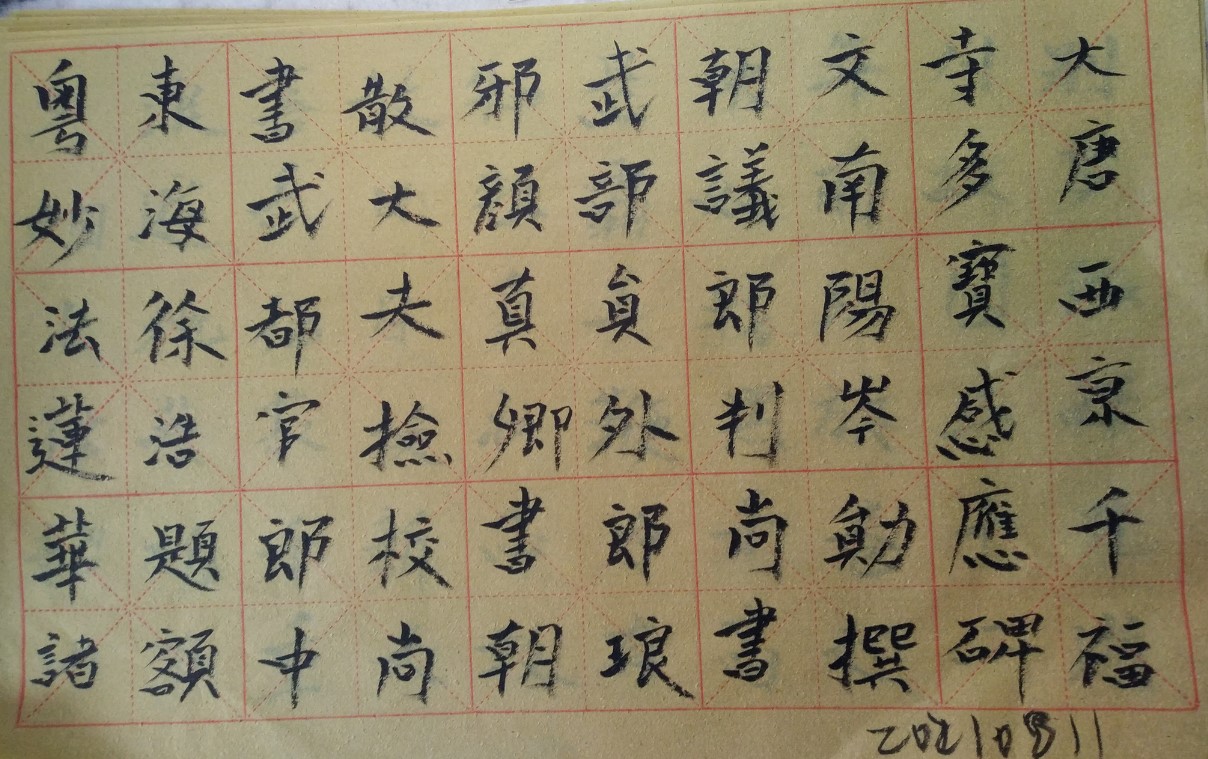 大唐西京千福
寺多寶感應碑
文南陽岑勛撰
朝議郎判尚書
武部員外郎琅
邪顏真卿書朝
散大夫撿校尚
書武都官郎中
東海徐浩題額
粵妙法蓮華諸
20210811